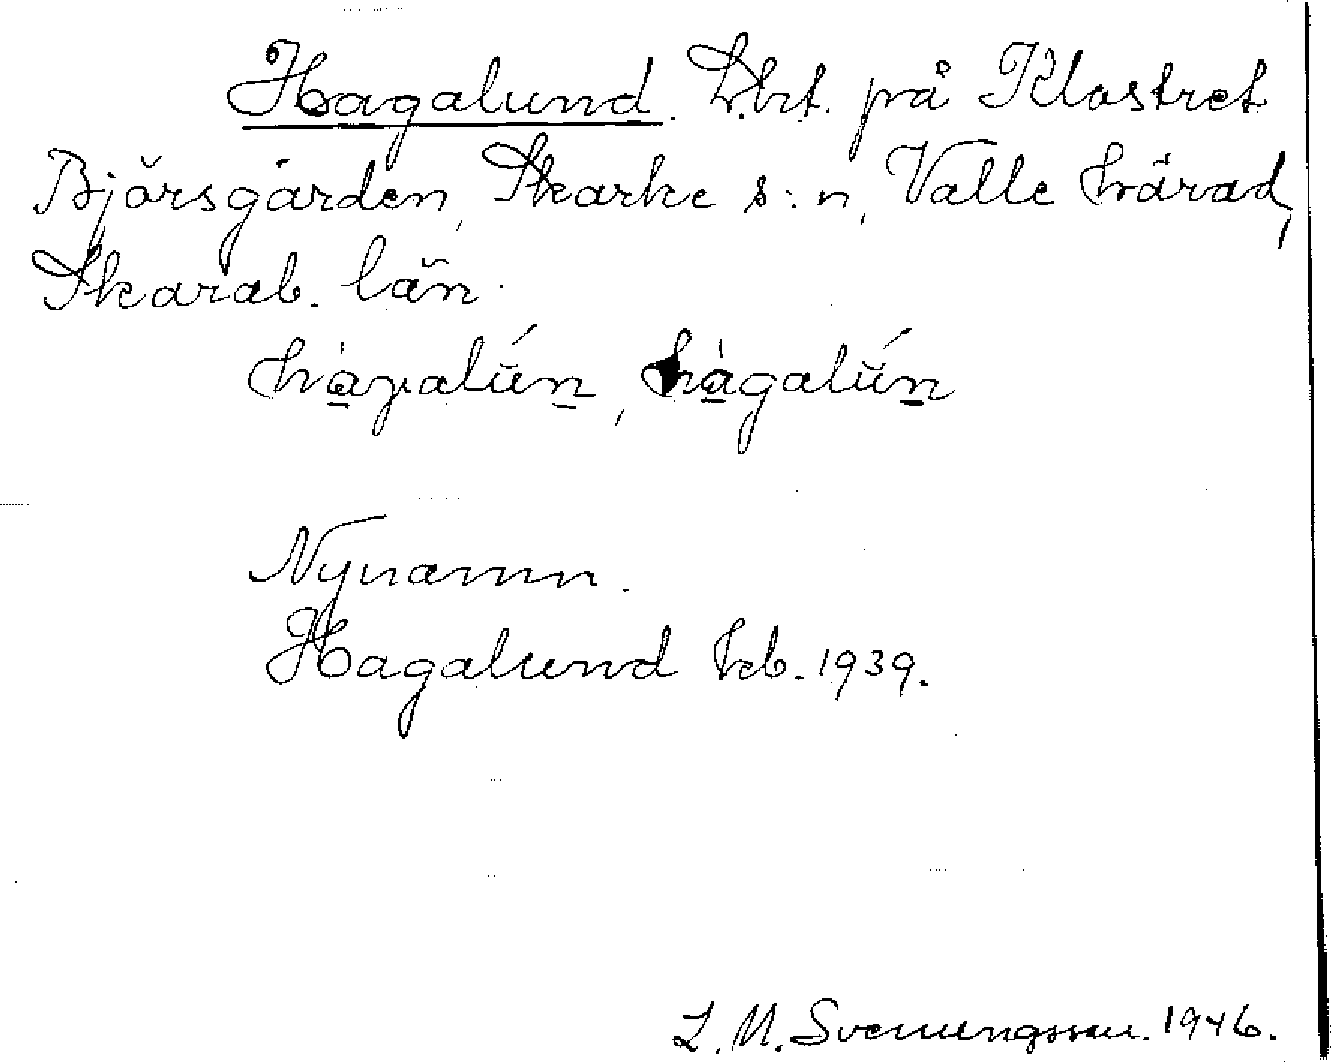 Hagalund. Lht. på Klostret
Björsgården, Skarke s:n, Valle härad,
Skarab. län.
hàgalún, hàgalún
Nynamn.
Hagalund Jeb. 1939.
L. M. Svenungsson. 1946.